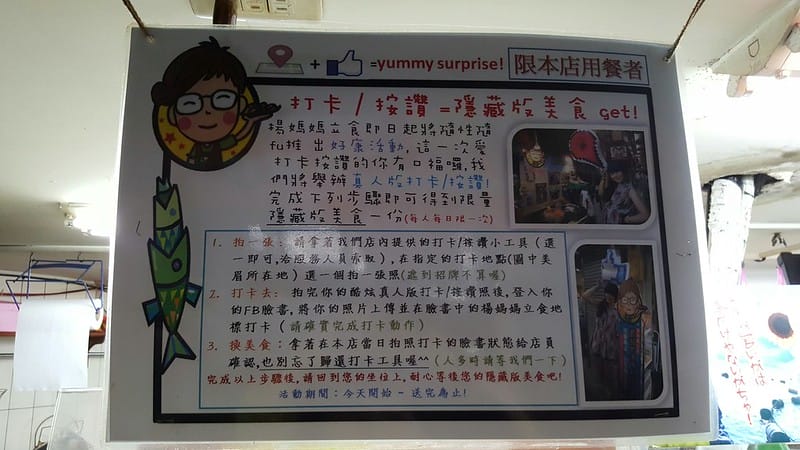 + =yummy surprise! 限本店用餐者
打卡/按讚=隱藏版美食 get!
楊媽媽立食即日起將隨性隨
fu推出好康活動,這一次愛
打卡按讚的你有口福囉,我
們將舉辦真人版打卡/按讚!
完成下列步驟即可得到限量
隱藏版美食一份(每人每日限一次)
1. 拍一張:請拿著我們店內提供的打卡/按讚小工具(選
一即可,洽服務人員索取),在指定的打卡地點(圖中美
眉所在地)選一個拍一張照(遮到招牌不算喔)
2. 打卡去:拍完你的酷炫真人版打卡/按讚照後,登入你
的FB臉書,將你的照片上傳並在臉書中的楊媽媽立食地
標打卡(請確實完成打卡動作)
3. 換美食:拿著在本店當日拍照打卡的臉書狀態給店員
確認,也別忘了歸還打卡工具喔^^(人多時請等我們一下)
完成以上步驟後,請回到您的坐位上,耐心等後您的隱藏版美食吧!
活動期間:今天開始-送完為止!